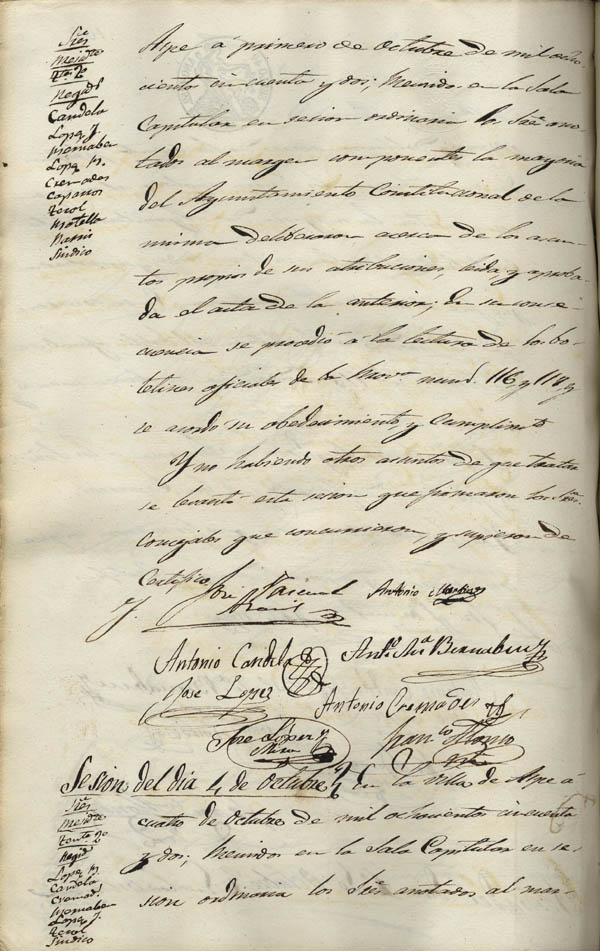 Sres
Presidte
Tente 2º
Regids
Candela
Lopez J.
Bernabeu
Lopez M.
Cremades
Caparros
Terol
Botella
Sindico
Aspe á primero de Octubre de mil ocho-
cientos cincuenta y dos; Reunidos en la Sala
Capitular en sesion ordinaria los Sres ano-
tados al margen componentes la mayoria
del Ayuntamiento Constitucional de la
misma deliberaron acerca de los asun-
tos propios de sus atribuciones, leida y aproba-
da el acta de la anterior; En su conse-
cuencia se procedió á la lectura de los bo-
letines oficiales de la Prova nums. 116 y 117, y
se acordó su obedecimiento y cumplimto
Y no habiendo otros asuntos de que tratar
se levantó esta sesion que firmaron los Sres
Concejales que concurrieron, y supieron de
Certifico
José Pascual
Antonio Martinez
Antonio Candela
Anto Ma Bernabeu
Jose Lopez
Antonio Cremades
Jose Lopez
Mira
Franco Alonso
Sesion del dia 4 de Octubre En la villa de Aspe á
cuatro de Octubre de mil ochocientos cincuenta
y dos; Reunidos en la Sala Capitular en se-
sion ordinaria los Sres anotados al mar-
Sres
Presidte
Tente 2º
Regids
Lopez M.
Candela
Cremads
Bernabeu
Lopez J.
Terol
Sindico